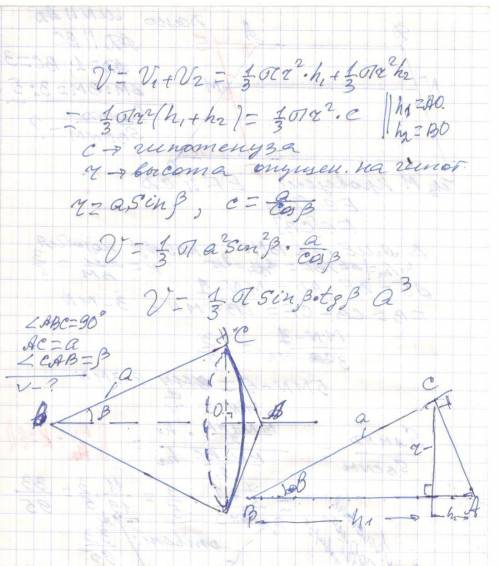 V = V₁ + V₂ = 1/3 πr²·h₁ + 1/3 πr²h₂
= 1/3 πr²(h₁ + h₂) = 1/3 πr²·c
h₁ = AO
h₂ = BO
c → гипотенуза
r → высота опущен. на гипот
r = a sin β, c = a/cos β
V = 1/3 π a² sin² β · a/cos β
V = 1/3 π sin β · tg β a³
∠ABC = 90°
AC = a
∠CAB = β
V - ?
C
a
B
β
O
C
a
r
B
β
A
h₁
h₂